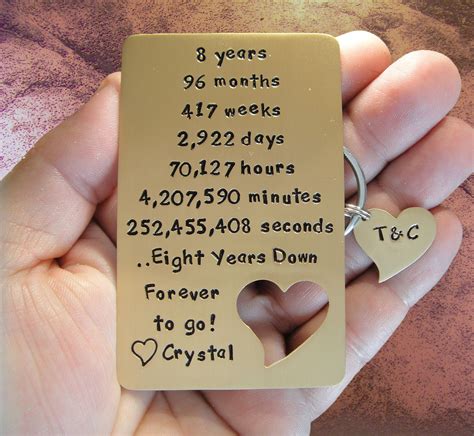 8 years
96 months
417 weeks
2,922 days
70,127 hours
4,207,590 minutes
252,455,408 seconds
..Eight Years Down
Forever
to go!
♡ Crystal
T&C